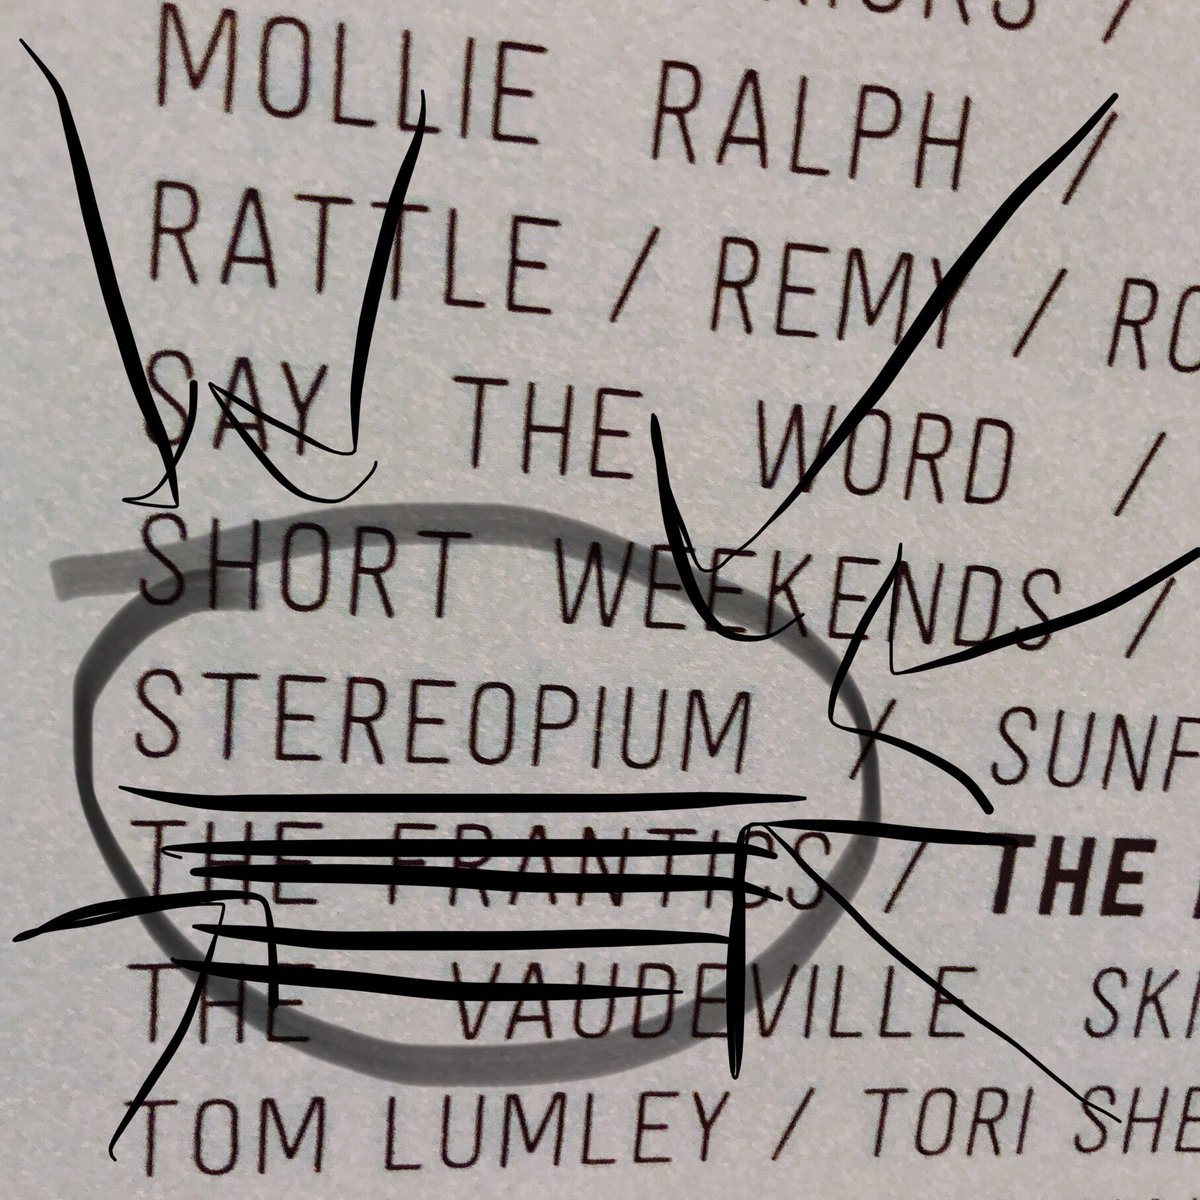 MOLLIE RALPH /
RATTLE / REMY /
SAY THE WORD /
SHORT WEEKENDS /
STEREOPIUM /
THE FRANTICS / THE
THE VAUDEVILLE
TOM LUMLEY / TORI